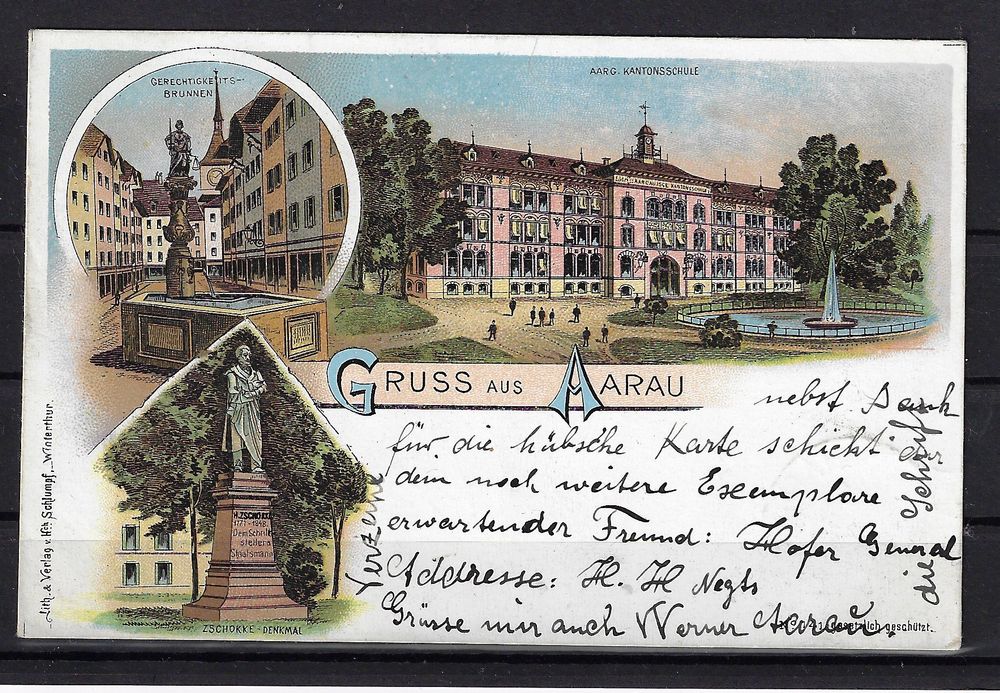 GERECHTIGKEITS-
BRUNNEN
AARG. KANTONSSCHULE
GRUSS AUS AARAU
H. ZSCHOKKE
1771-1848
Dem Schrift-
stellers
Staatsmann
ZSCHOKKE-DENKMAL
Lith. & Verlag v. Hch. Schlumpf, Winterthur.
nebst Dank
für die hübsche Karte schickt dir
dem noch weitere Exemplare
erwartender Freund: Hofer General
Addresse: H. H Negts
Grüsse mir auch Werner Aarau.
Verzeihe
die Schrift
gesetzlich geschützt.